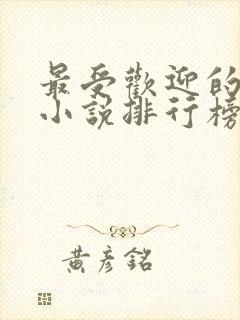 最受歡迎的
小說排行榜
黃彥銘